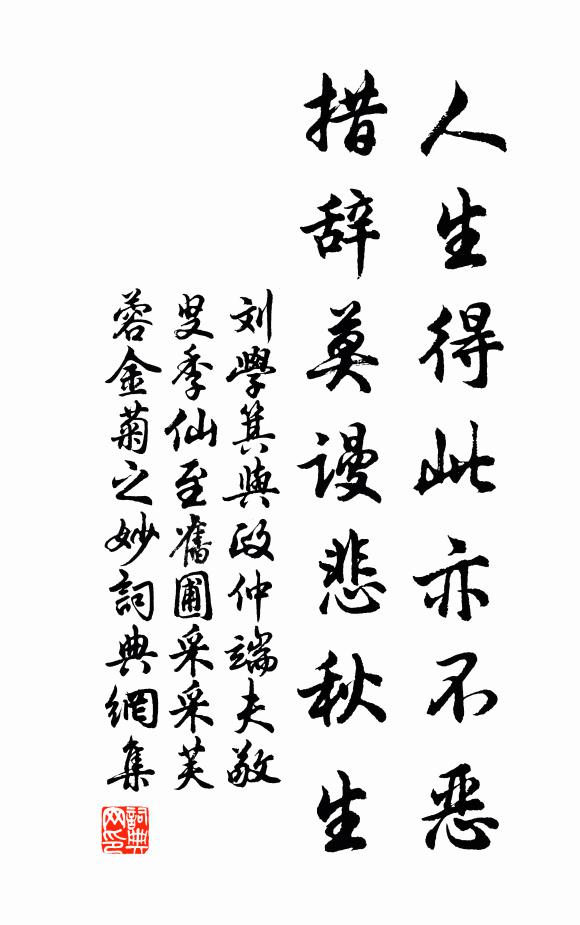 人生得此亦不恶
措辞莫谩悲秋生
刘學箕與政仲端夫敬
叟季仙至舊圃采采芙
蓉金菊之妙詞典網集
詞典网印